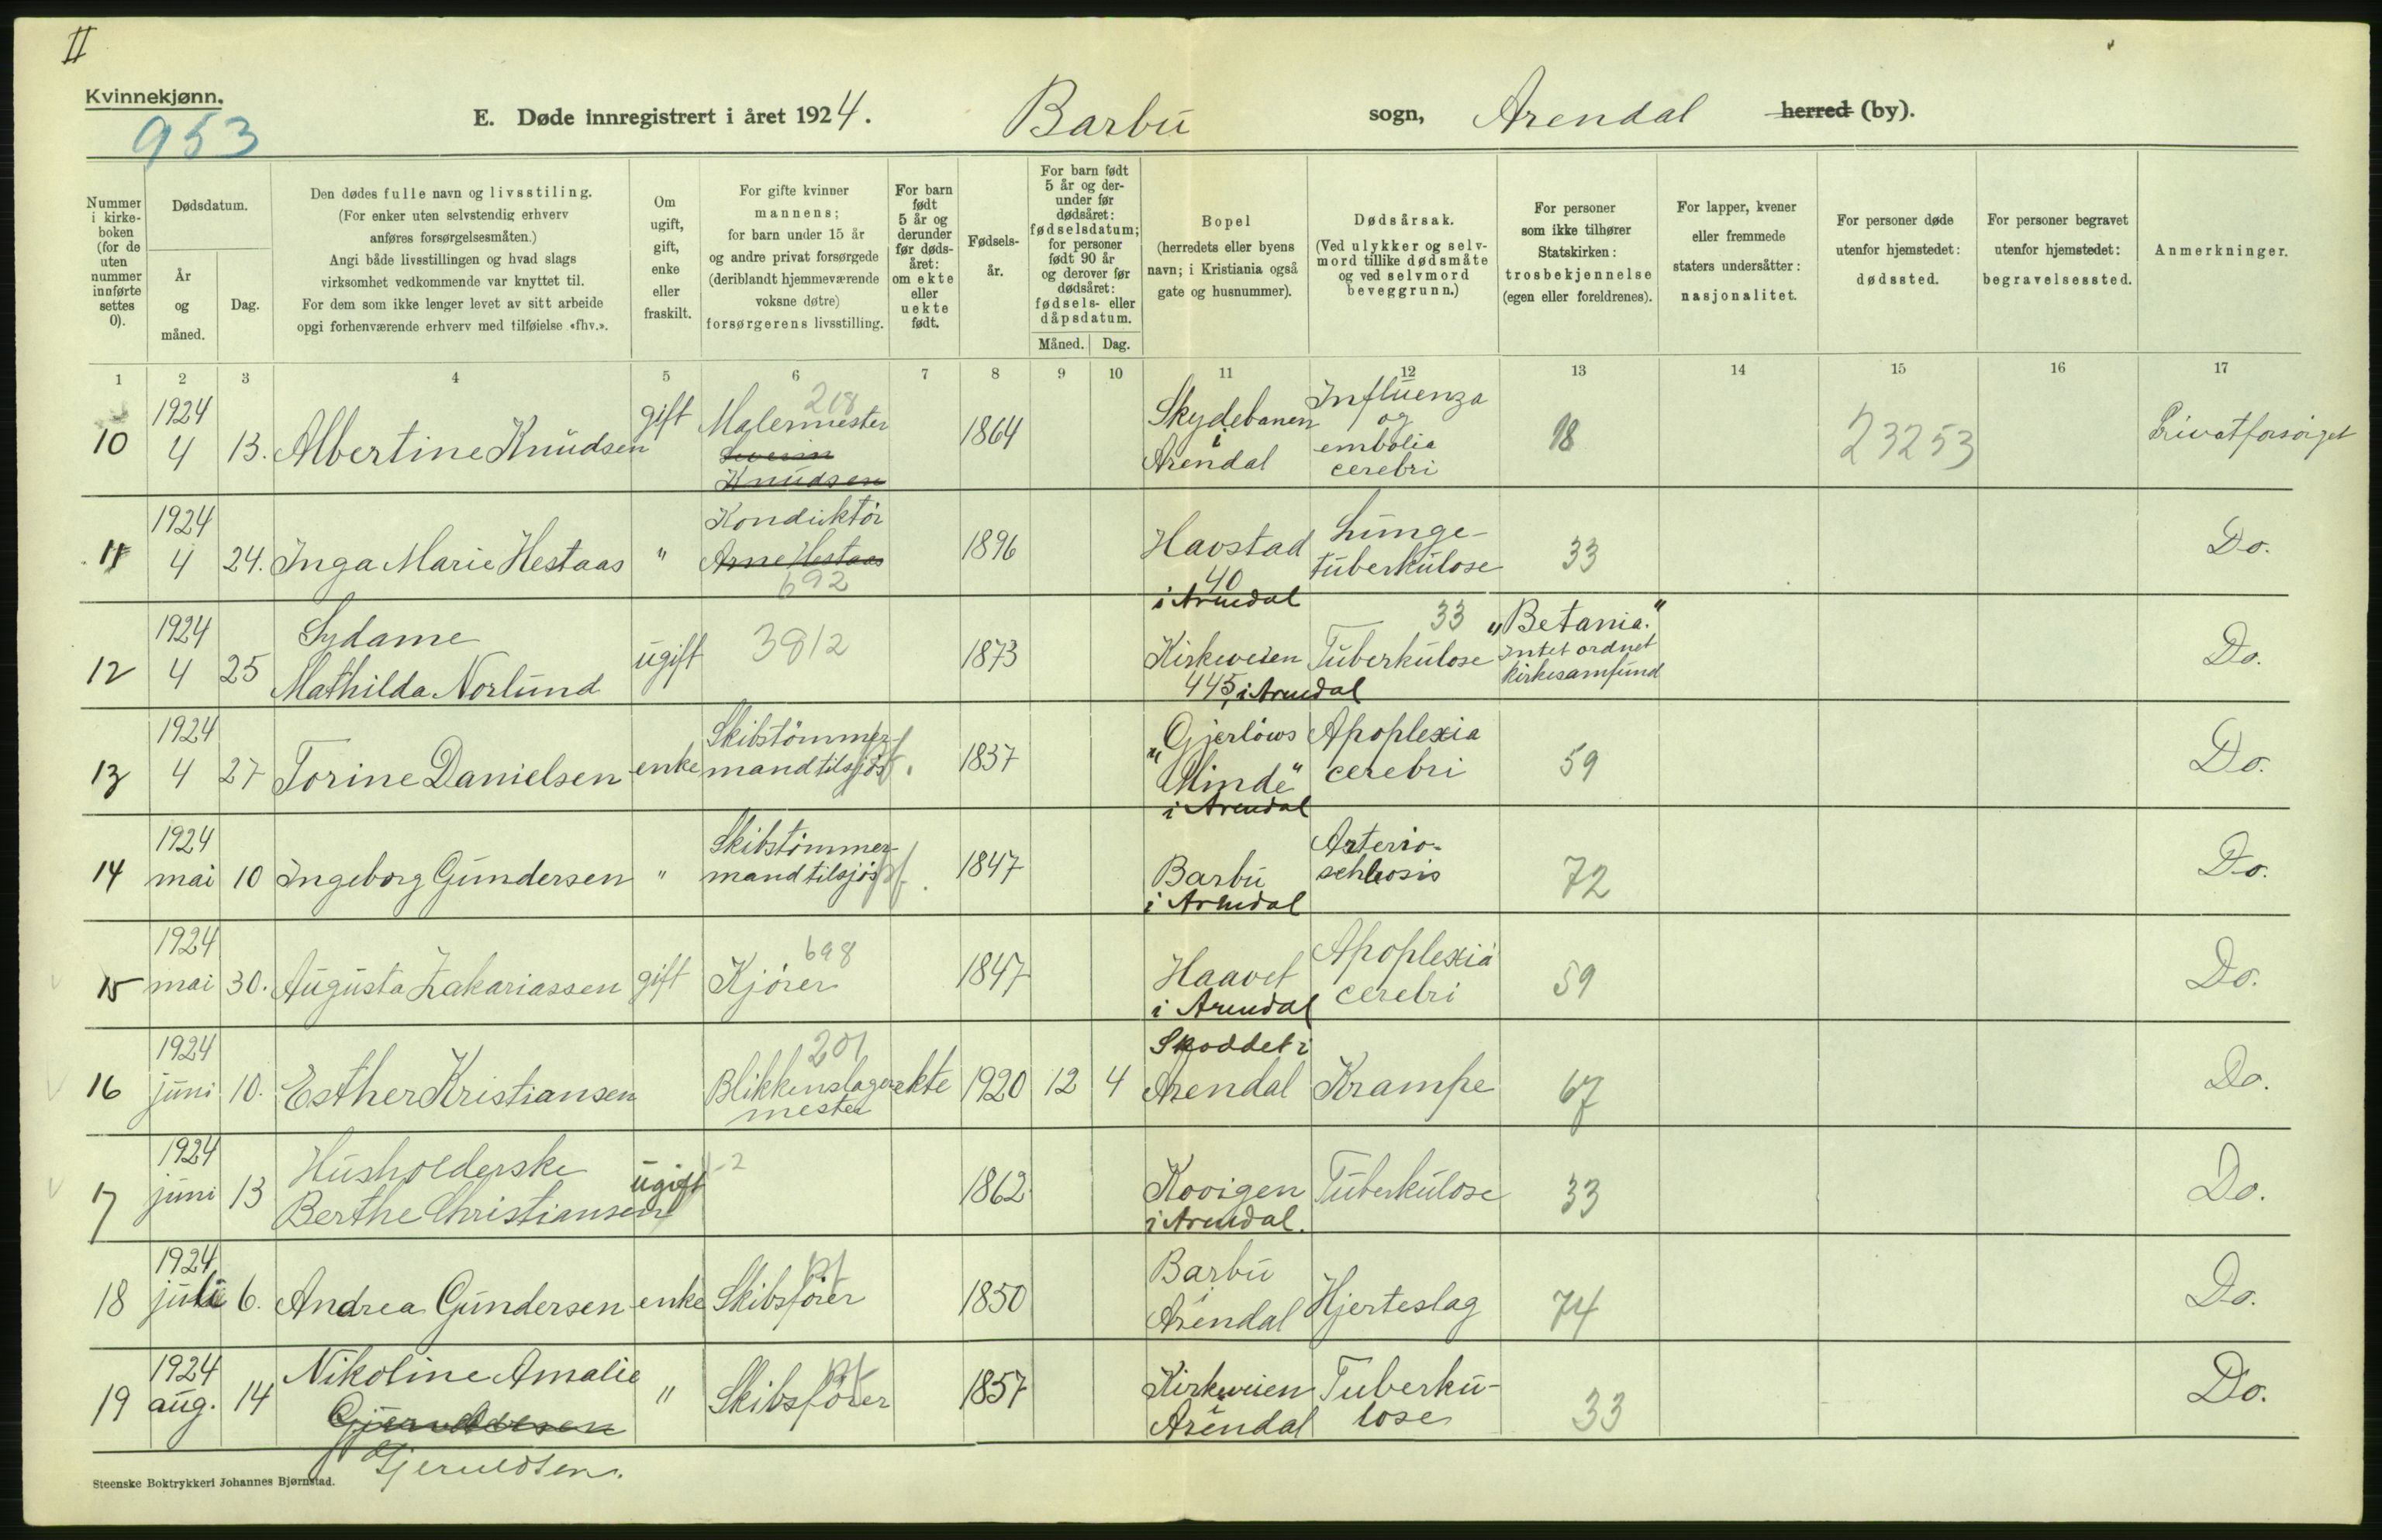 II
Kvinnekjønn.
953
E. Døde innregistrert i året 1924. Barbu sogn, Arendal herred (by).
Nummer i kirke-boken (for de uten nummer innførte settes 0).
Dødsdatum.
År og måned.
Dag.
Den dødes fulle navn og livsstilling.
(For enker uten selvstendig erhverv
anføres forsørgelsesmåten.)
Angi både livsstillingen og hvad slags
virksomhet vedkommende var knyttet til.
For dem som ikke lenger levet av sitt arbeide
opgi forhenværende erhverv med tilføielse «fhv.».
Om ugift, gift, enke eller fraskilt.
For gifte kvinner
mannens;
for barn under 15 år
og andre privat forsørgede
(deriblandt hjemmeværende
voksne døtre)
forsørgerens livsstilling.
For barn født 5 år og derunder før døds-året: om ekte eller uekte født.
Fødsels-år.
For barn født 5 år og der-under før dødsåret: fødselsdatum; for personer født 90 år og derover før dødsåret: fødsels- eller dåpsdatum.
Måned. Dag.
Bopel
(herredets eller byens
navn; i Kristiania også
gate og husnummer).
Dødsårsak.
(Ved ulykker og selv-
mord tillike dødsmåte
og ved selvmord
beveggrunn.)
For personer
som ikke tilhører
Statskirken:
trosbekjennelse
(egen eller foreldrenes).
For lapper, kvener
eller fremmede
staters undersåtter:
nasjonalitet.
For personer døde
utenfor hjemstedet:
dødssted.
For personer begravet
utenfor hjemstedet:
begravelsessted.
Anmerkninger.
1 2 3 4 5 6 7 8 9 10 11 12 13 14 15 16 17
10 1924 4 13. Albertine Knudsen gift 218 Malermester Severin Knudsen 1864 Skydebanen i Arendal Influenza og embolia cerebri 18 23253 Privatforsørget
11 1924 4 24. Inga Marie Hestaas " Konduktør Arne Hestaas 692 1896 Havstad 40 i Arendal Lunge-tuberkulose 33 Do.
12 1924 4 25 Sydame Mathilda Norlund ugift 3812 1873 Kirkeveien 445, i Arendal Tuberkulose 33 "Betania." Intet ordnet kirkesamfund Do.
13 1924 4 27 Torine Danielsen enke Skibstømmermand tilsjøs pf. 1837 "Gjerløws Minde" i Arendal Apoplexia cerebri 59 Do.
14 1924 mai 10 Ingeborg Gundersen " Skibstømmermand tilsjøs pf. 1847 Barbu i Arendal Arterio-schlerosis 72 Do.
15 1924 mai 30. Augusta Zakariassen gift 698 Kjører 1847 Haavet i Arendal Apoplexia cerebri 59 Do.
16 1924 juni 10. Esther Kristiansen 201 Blikkenslagermester ekte 1920 12 4 Skoddet i Arendal Krampe 67 Do.
17 1924 juni 13 Husholderske Berthe Christiansen ugift 1-2 1862 Kovigen i Arendal. Tuberkulose 33 Do.
18 1924 juli 6. Andrea Gundersen enke pf Skibsfører 1850 Barbu i Arendal Hjerteslag 74 Do.
19 1924 aug. 14 Nikoline Amalie " pf Skibsfører 1857 Kirkeveien i Arendal Tuberkulose 33 Do.
Gjeruldsen.
Steenske Boktrykkeri Johannes Bjørnstad.